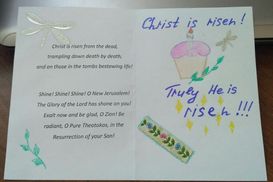 Christ is risen from the dead,
trampling down death by death;
and on those in the tombs bestowing life!
Shine! Shine! Shine! O New Jerusalem!
The Glory of the Lord has shone on you!
Exalt now and be glad, O Zion! Be
radiant, O Pure Theotokos, in the
Resurrection of your Son!
Christ is risen!
Truly He is
risen!!!